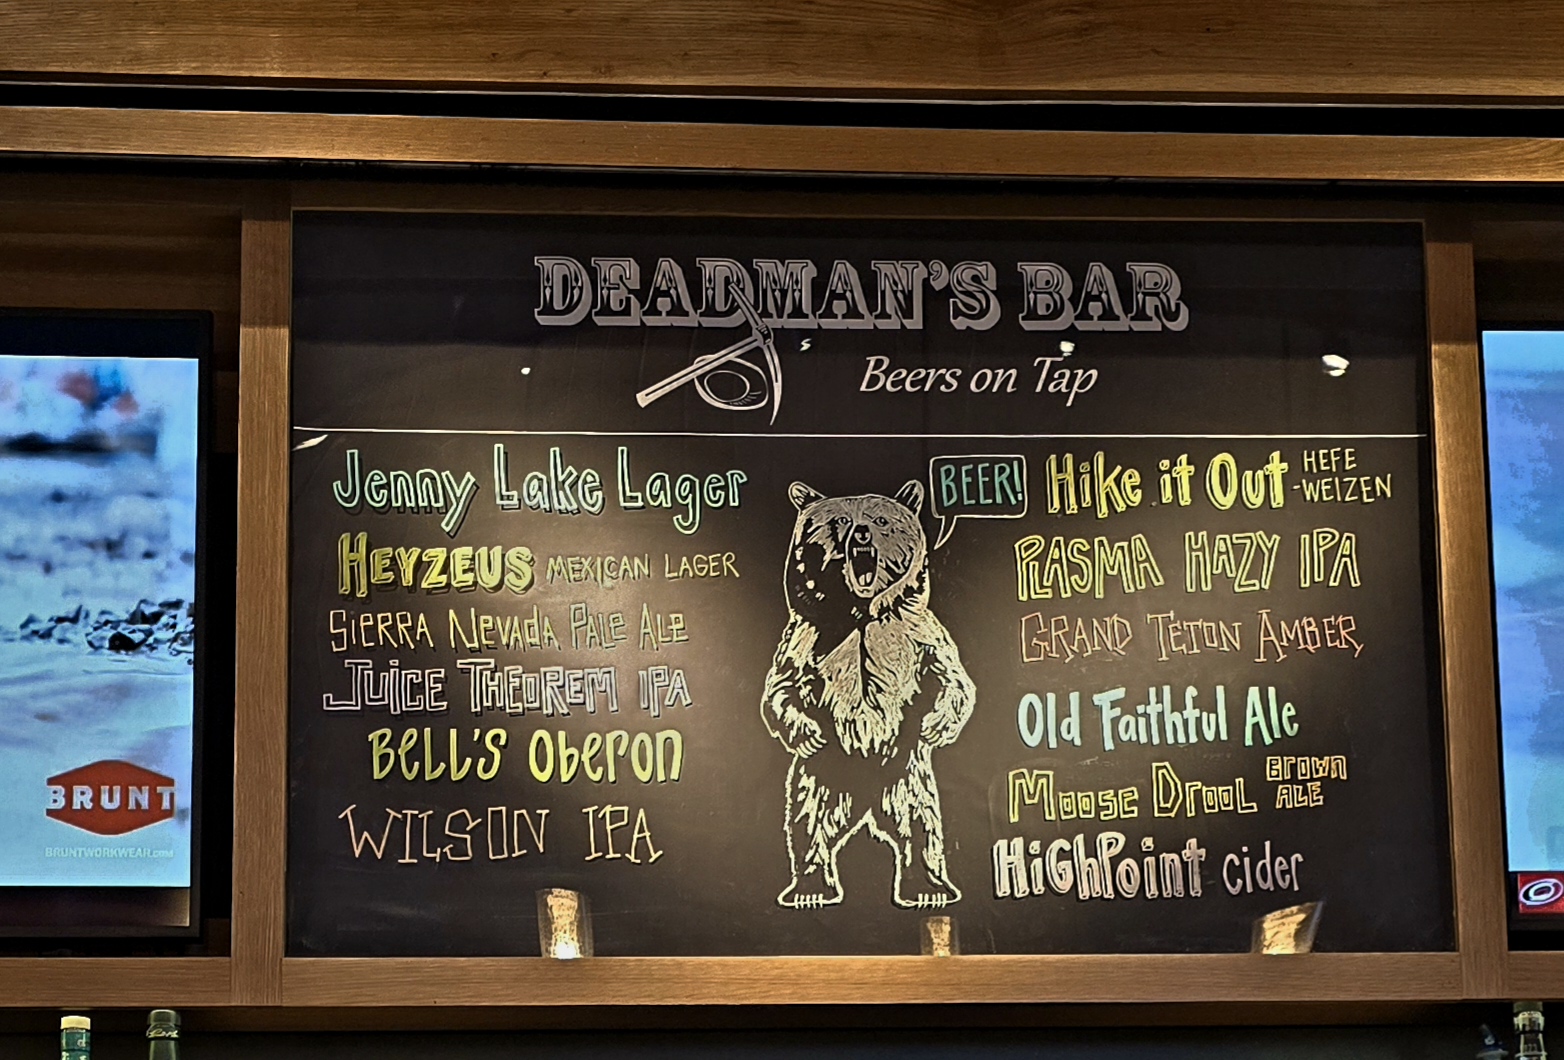 DEADMAN'S BAR
Beers on Tap
Jenny Lake Lager
HEYZEUS MEXICAN LAGER
SIERRA NEVADA PALE ALE
JUICE THEOREM IPA
BELL'S OBERON
WILSON IPA
BEER!
Hike it Out HEFE
-WEIZEN
PLASMA HAZY IPA
GRAND TETON AMBER
Old Faithful Ale
Moose Drool BROWN
ALE
HiGHPoint cider
BRUNT
BRUNTWORKWEAR.com